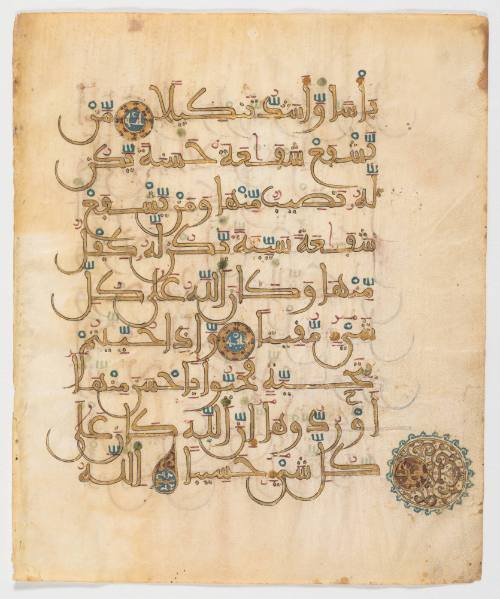 بأسا وأشد تنكيلا من
يشفع شفعة حسنة يكن
له نصيب منها ومن يشفع
شفعة سيئة يكن له كفل
منها وكان الله على كل
شيء مقيتا وإذا حييتم
بتحية فحيوا بأحسن منها
أو ردوها إن الله كان على
كل شيء حسيبا الله